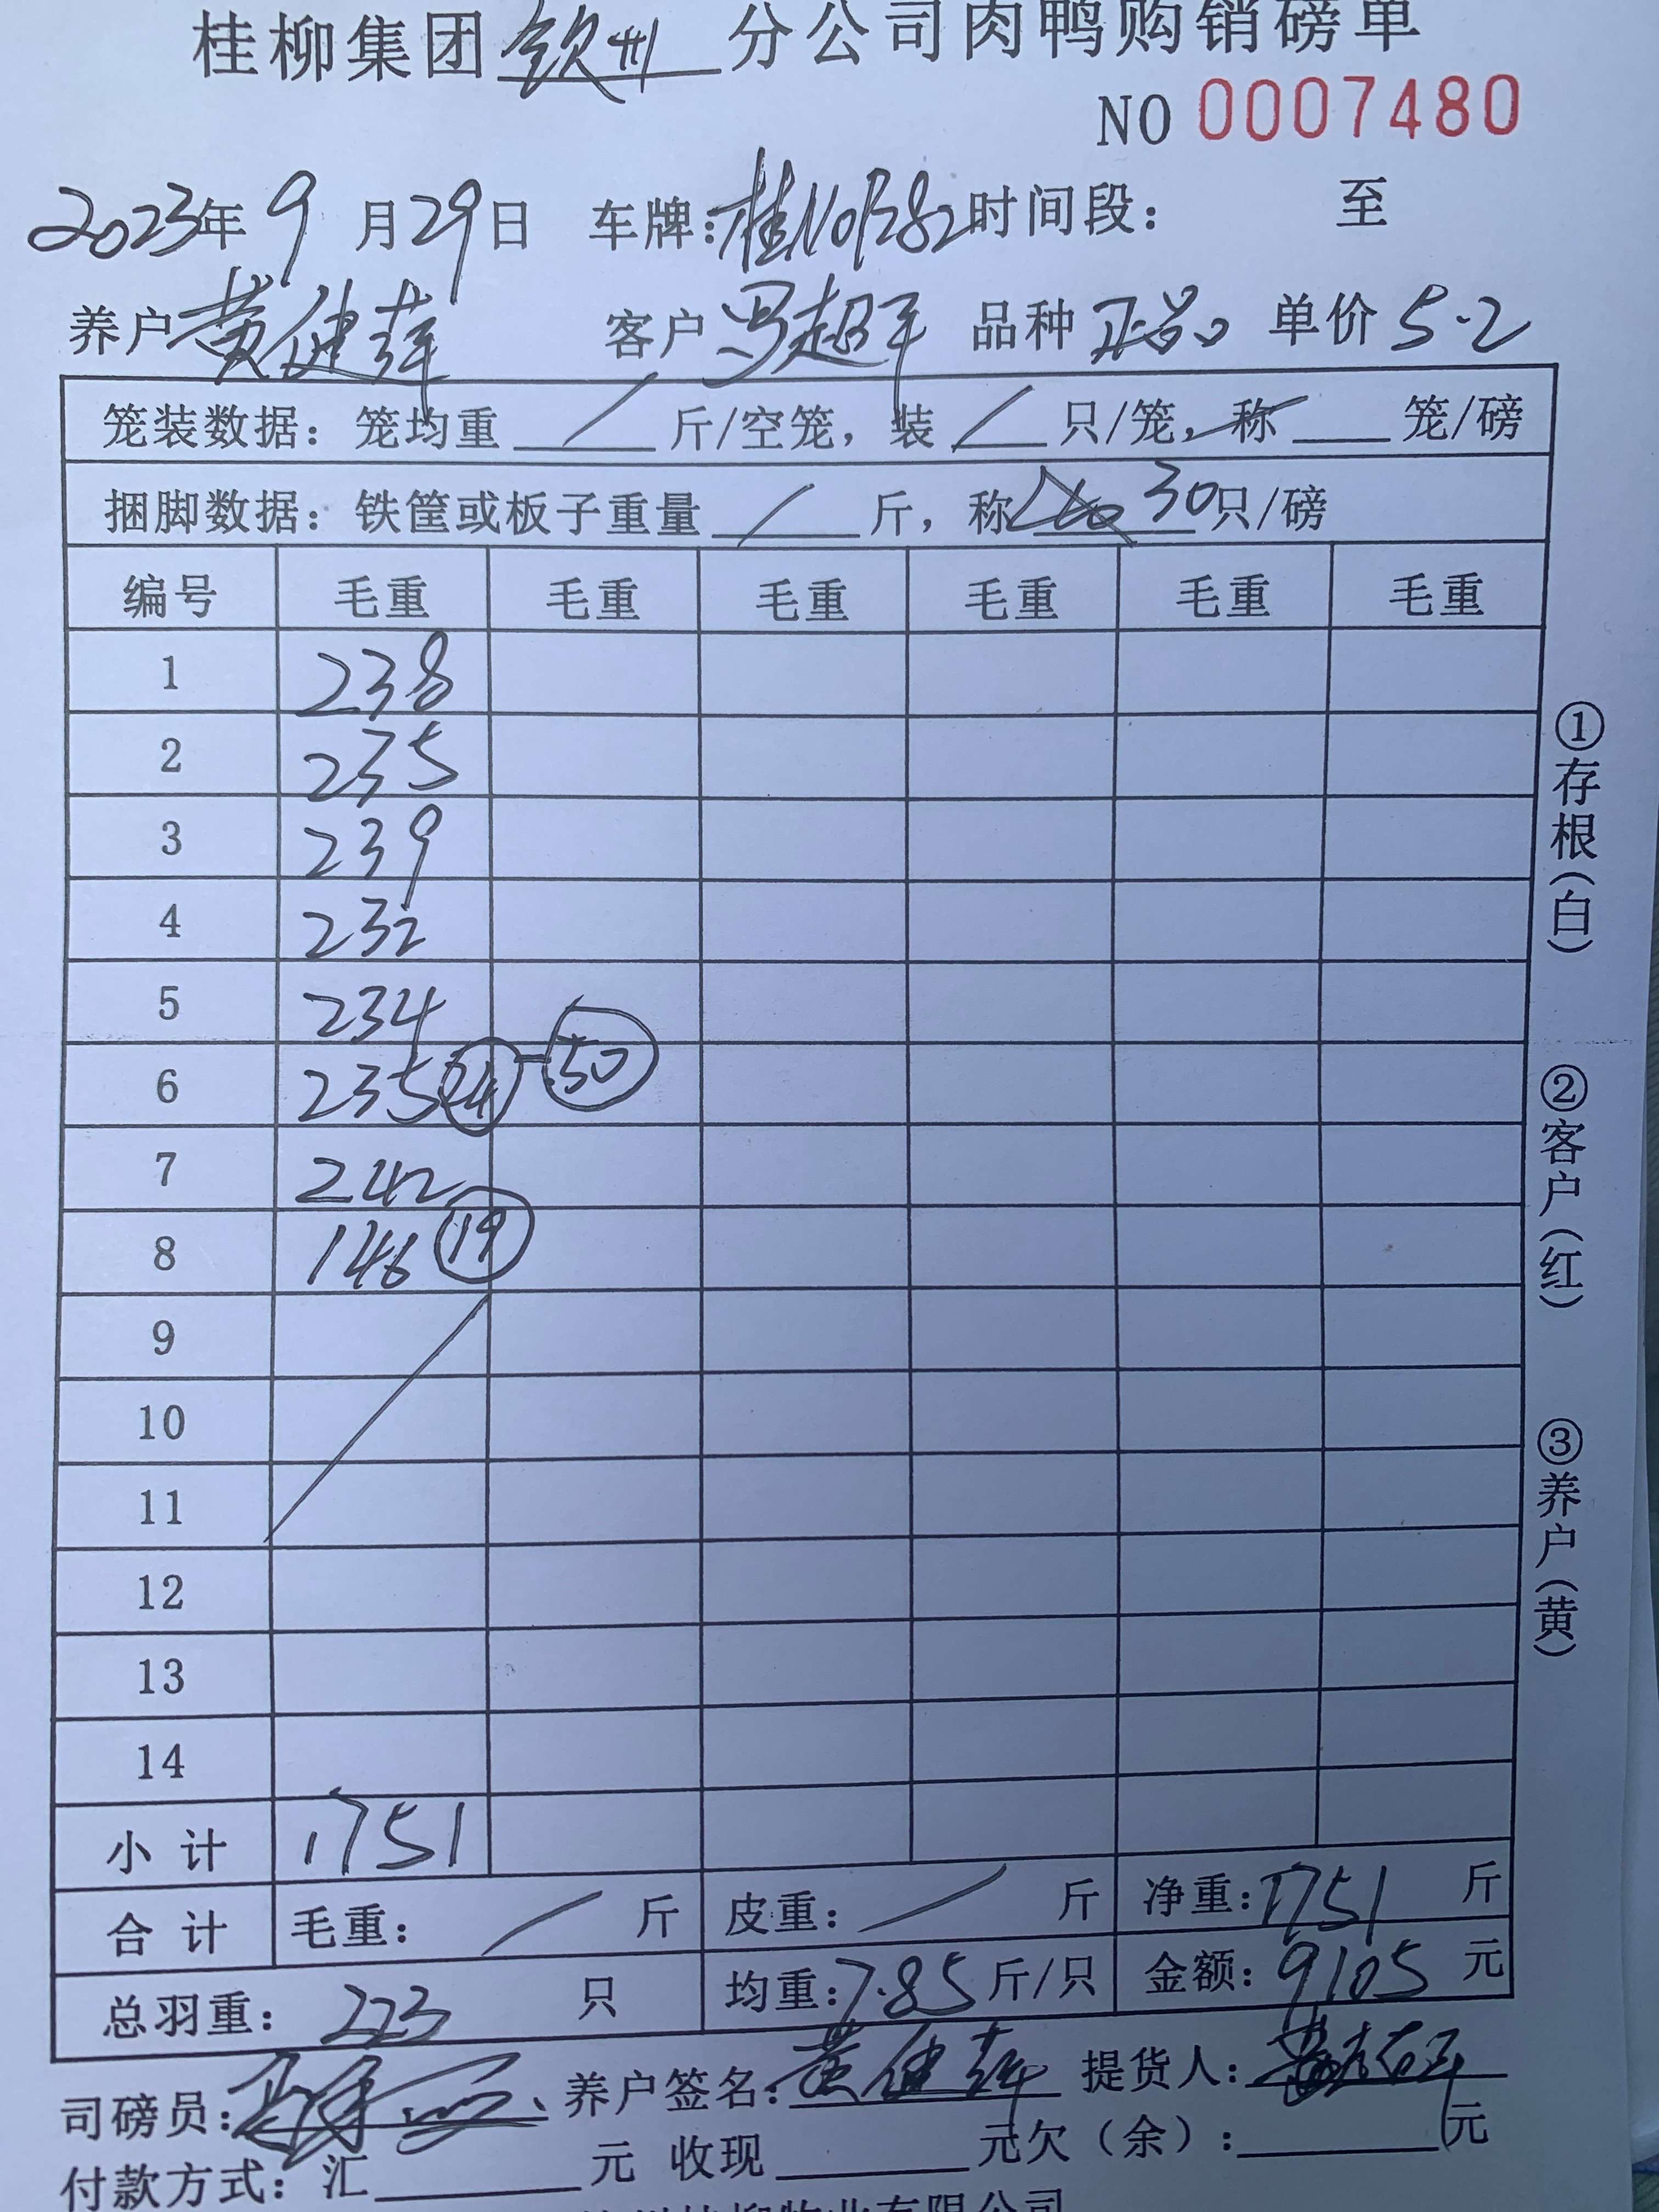 桂柳集团钦州分公司肉鸭购销磅单
NO 0007480
2023年9月29日 车牌:桂N0P282时间段: 至
养户黄健萍 客户冯超平 品种正品 单价5.2
笼装数据: 笼均重/斤/空笼, 装/只/笼, 称 笼/磅
捆脚数据: 铁筐或板子重量/斤, 称30只/磅
编号 毛重 毛重 毛重 毛重 毛重 毛重
1 238
2 235
3 239
4 232
5 234
6 235 24 -50
7 242
8 146 19
9
10
11
12
13
14
小计 1751
合计 毛重: / 斤 皮重: / 斤 净重:1751斤
总羽重: 223 只 均重:7.85斤/只 金额:9105元
司磅员: 养户签名:黄健萍 提货人:
付款方式: 汇 元 收现 元欠(余): 元
①存根(白) ②客户(红) ③养户(黄)